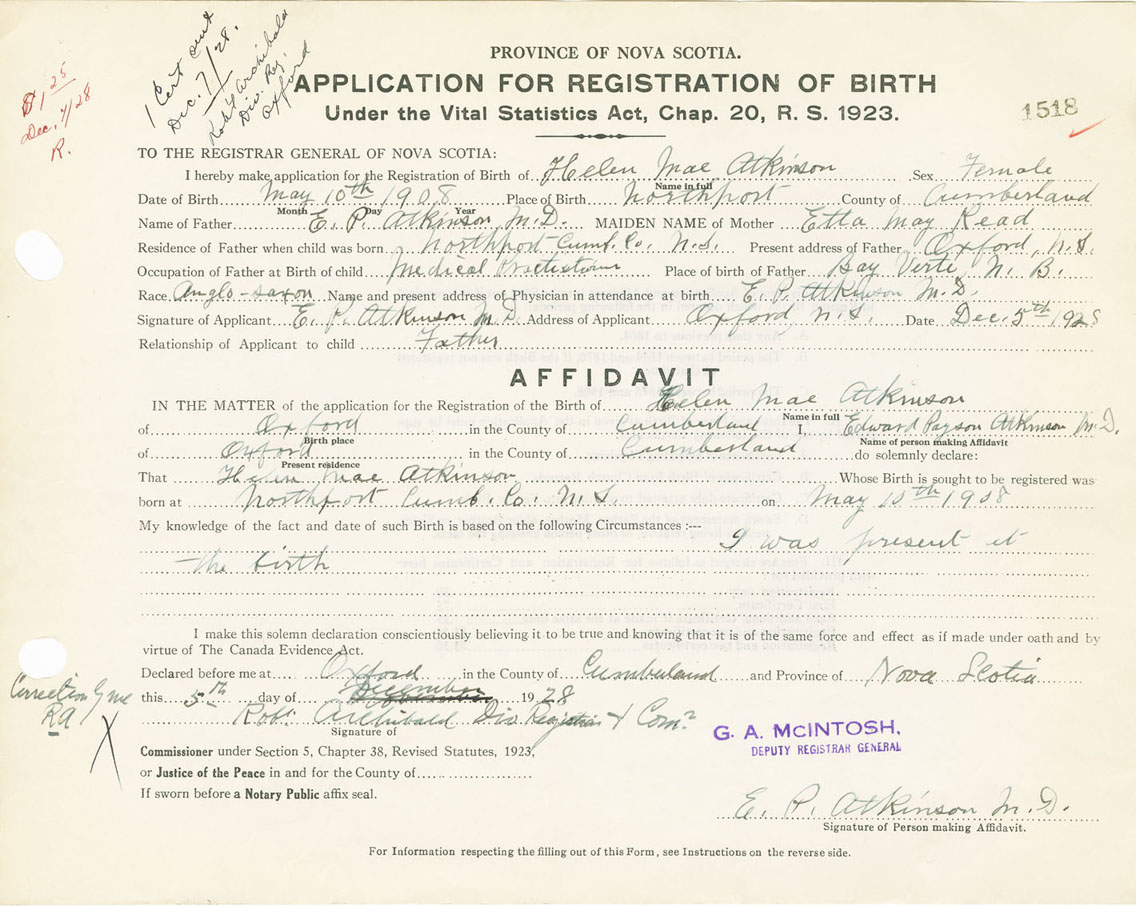 1 Cert out
Dec. 7/28.
Robt Archibald
Div. Reg.
Oxford
$1 25
Dec. 7/28
R.
PROVINCE OF NOVA SCOTIA.
APPLICATION FOR REGISTRATION OF BIRTH
Under the Vital Statistics Act, Chap. 20, R. S. 1923.
1518
TO THE REGISTRAR GENERAL OF NOVA SCOTIA:
I hereby make application for the Registration of Birth of Helen Mae Atkinson Sex Female
Name in full
Date of Birth May 10th 1908 Place of Birth Northport County of Cumberland
Month Day Year
Name of Father E. P. Atkinson, M.D. MAIDEN NAME of Mother Etta May Read
Residence of Father when child was born Northport Cumb. Co. N.S. Present address of Father Oxford, N.S.
Occupation of Father at Birth of child Medical Place of birth of Father Bay Verte, N. B.
Race Anglo-saxon Name and present address of Physician in attendance at birth E. P. Atkinson M.D.
Signature of Applicant E. P. Atkinson M.D. Address of Applicant Oxford, N.S. Date Dec. 5th 1928
Relationship of Applicant to child Father
AFFIDAVIT
IN THE MATTER of the application for the Registration of the Birth of Helen Mae Atkinson
Name in full
of Oxford in the County of Cumberland I, Edward Payson Atkinson M.D.
Birth place Name of person making Affidavit
of Oxford in the County of Cumberland do solemnly declare:
Present residence
That Helen Mae Atkinson Whose Birth is sought to be registered was
born at Northport Cumb. Co. N.S. on May 10th 1908
My knowledge of the fact and date of such Birth is based on the following Circumstances :---
I was present at
the birth
I make this solemn declaration conscientiously believing it to be true and knowing that it is of the same force and effect as if made under oath and by
virtue of The Canada Evidence Act.
Declared before me at Oxford in the County of Cumberland and Province of Nova Scotia
Correction by me
RA
X
this 5th day of December 1928
Robt Archibald Div Registrar & Comr
Signature of
G. A. McINTOSH,
DEPUTY REGISTRAR GENERAL
Commissioner under Section 5, Chapter 38, Revised Statutes, 1923,
or Justice of the Peace in and for the County of
If sworn before a Notary Public affix seal.
E. P. Atkinson M.D.
Signature of Person making Affidavit.
For Information respecting the filling out of this Form, see Instructions on the reverse side.